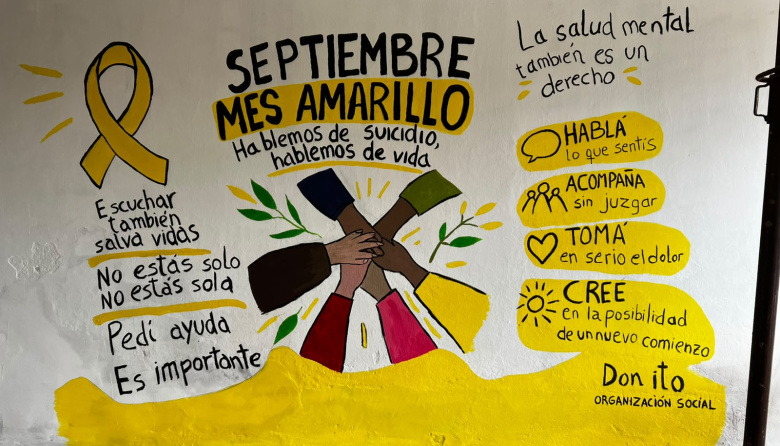 SEPTIEMBRE
MES AMARILLO
Hablemos de suicidio,
hablemos de vida
Escuchar
también
salva vidas
No estás solo
No estás sola
Pedí ayuda
Es importante
La salud mental
también es un
derecho
HABLÁ
lo que sentís
ACOMPAÑA
sin juzgar
TOMÁ
en serio el dolor
CREE
en la posibilidad
de un nuevo comienzo
Don ito
ORGANIZACIÓN SOCIAL